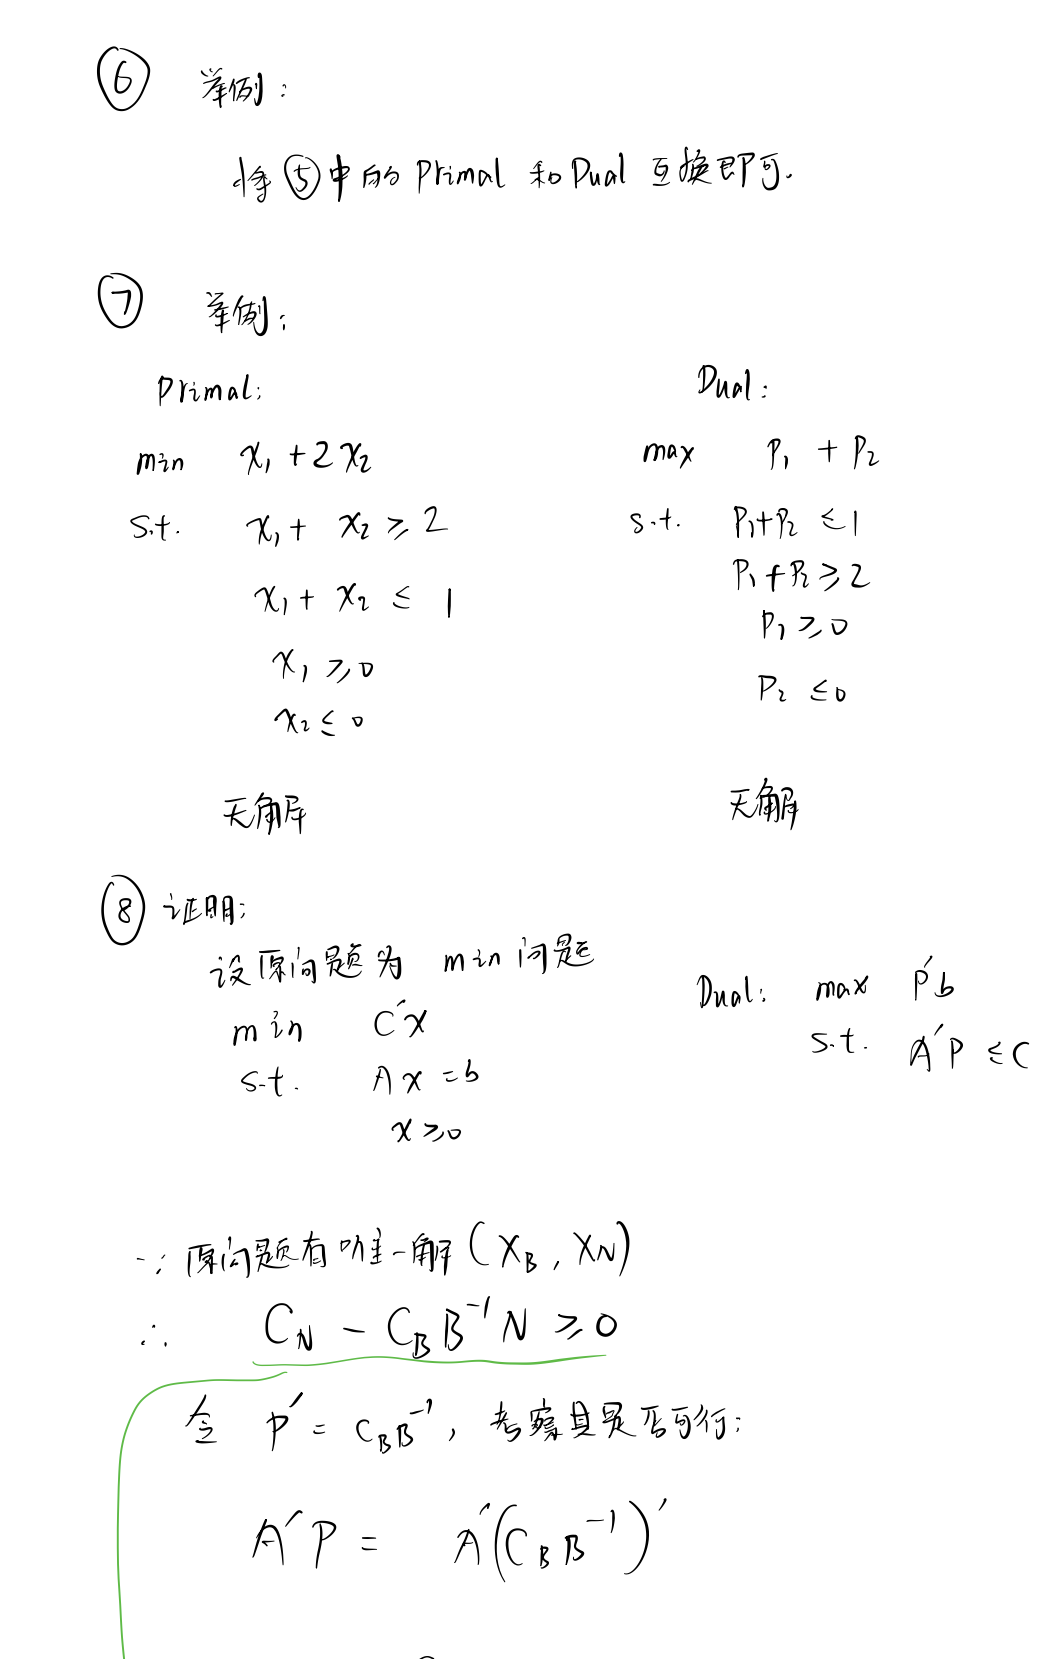 ⑥ 举例:
将⑤中的 Primal 和 Dual 互换即可.
⑦ 举例:
Primal:
min x₁ + 2x₂
s.t. x₁ + x₂ ≥ 2
x₁ + x₂ ≤ 1
x₁ ≥ 0
x₂ ≤ 0
无解
Dual:
max P₁ + P₂
s.t. P₁+P₂ ≤ 1
P₁+P₂ ≥ 2
P₁ ≥ 0
P₂ ≤ 0
无解
⑧ 证明:
设原问题为 min 问题
min C'x
s.t. Ax = b
x ≥ 0
Dual: max P'b
s.t. A'P ≤ C
∵ 原问题有唯一解 (X_B, X_N)
∴ C_N - C_B B⁻¹ N ≥ 0
令 P' = C_B B⁻¹, 考察其是否可行:
A'P = A'(C_B B⁻¹)'